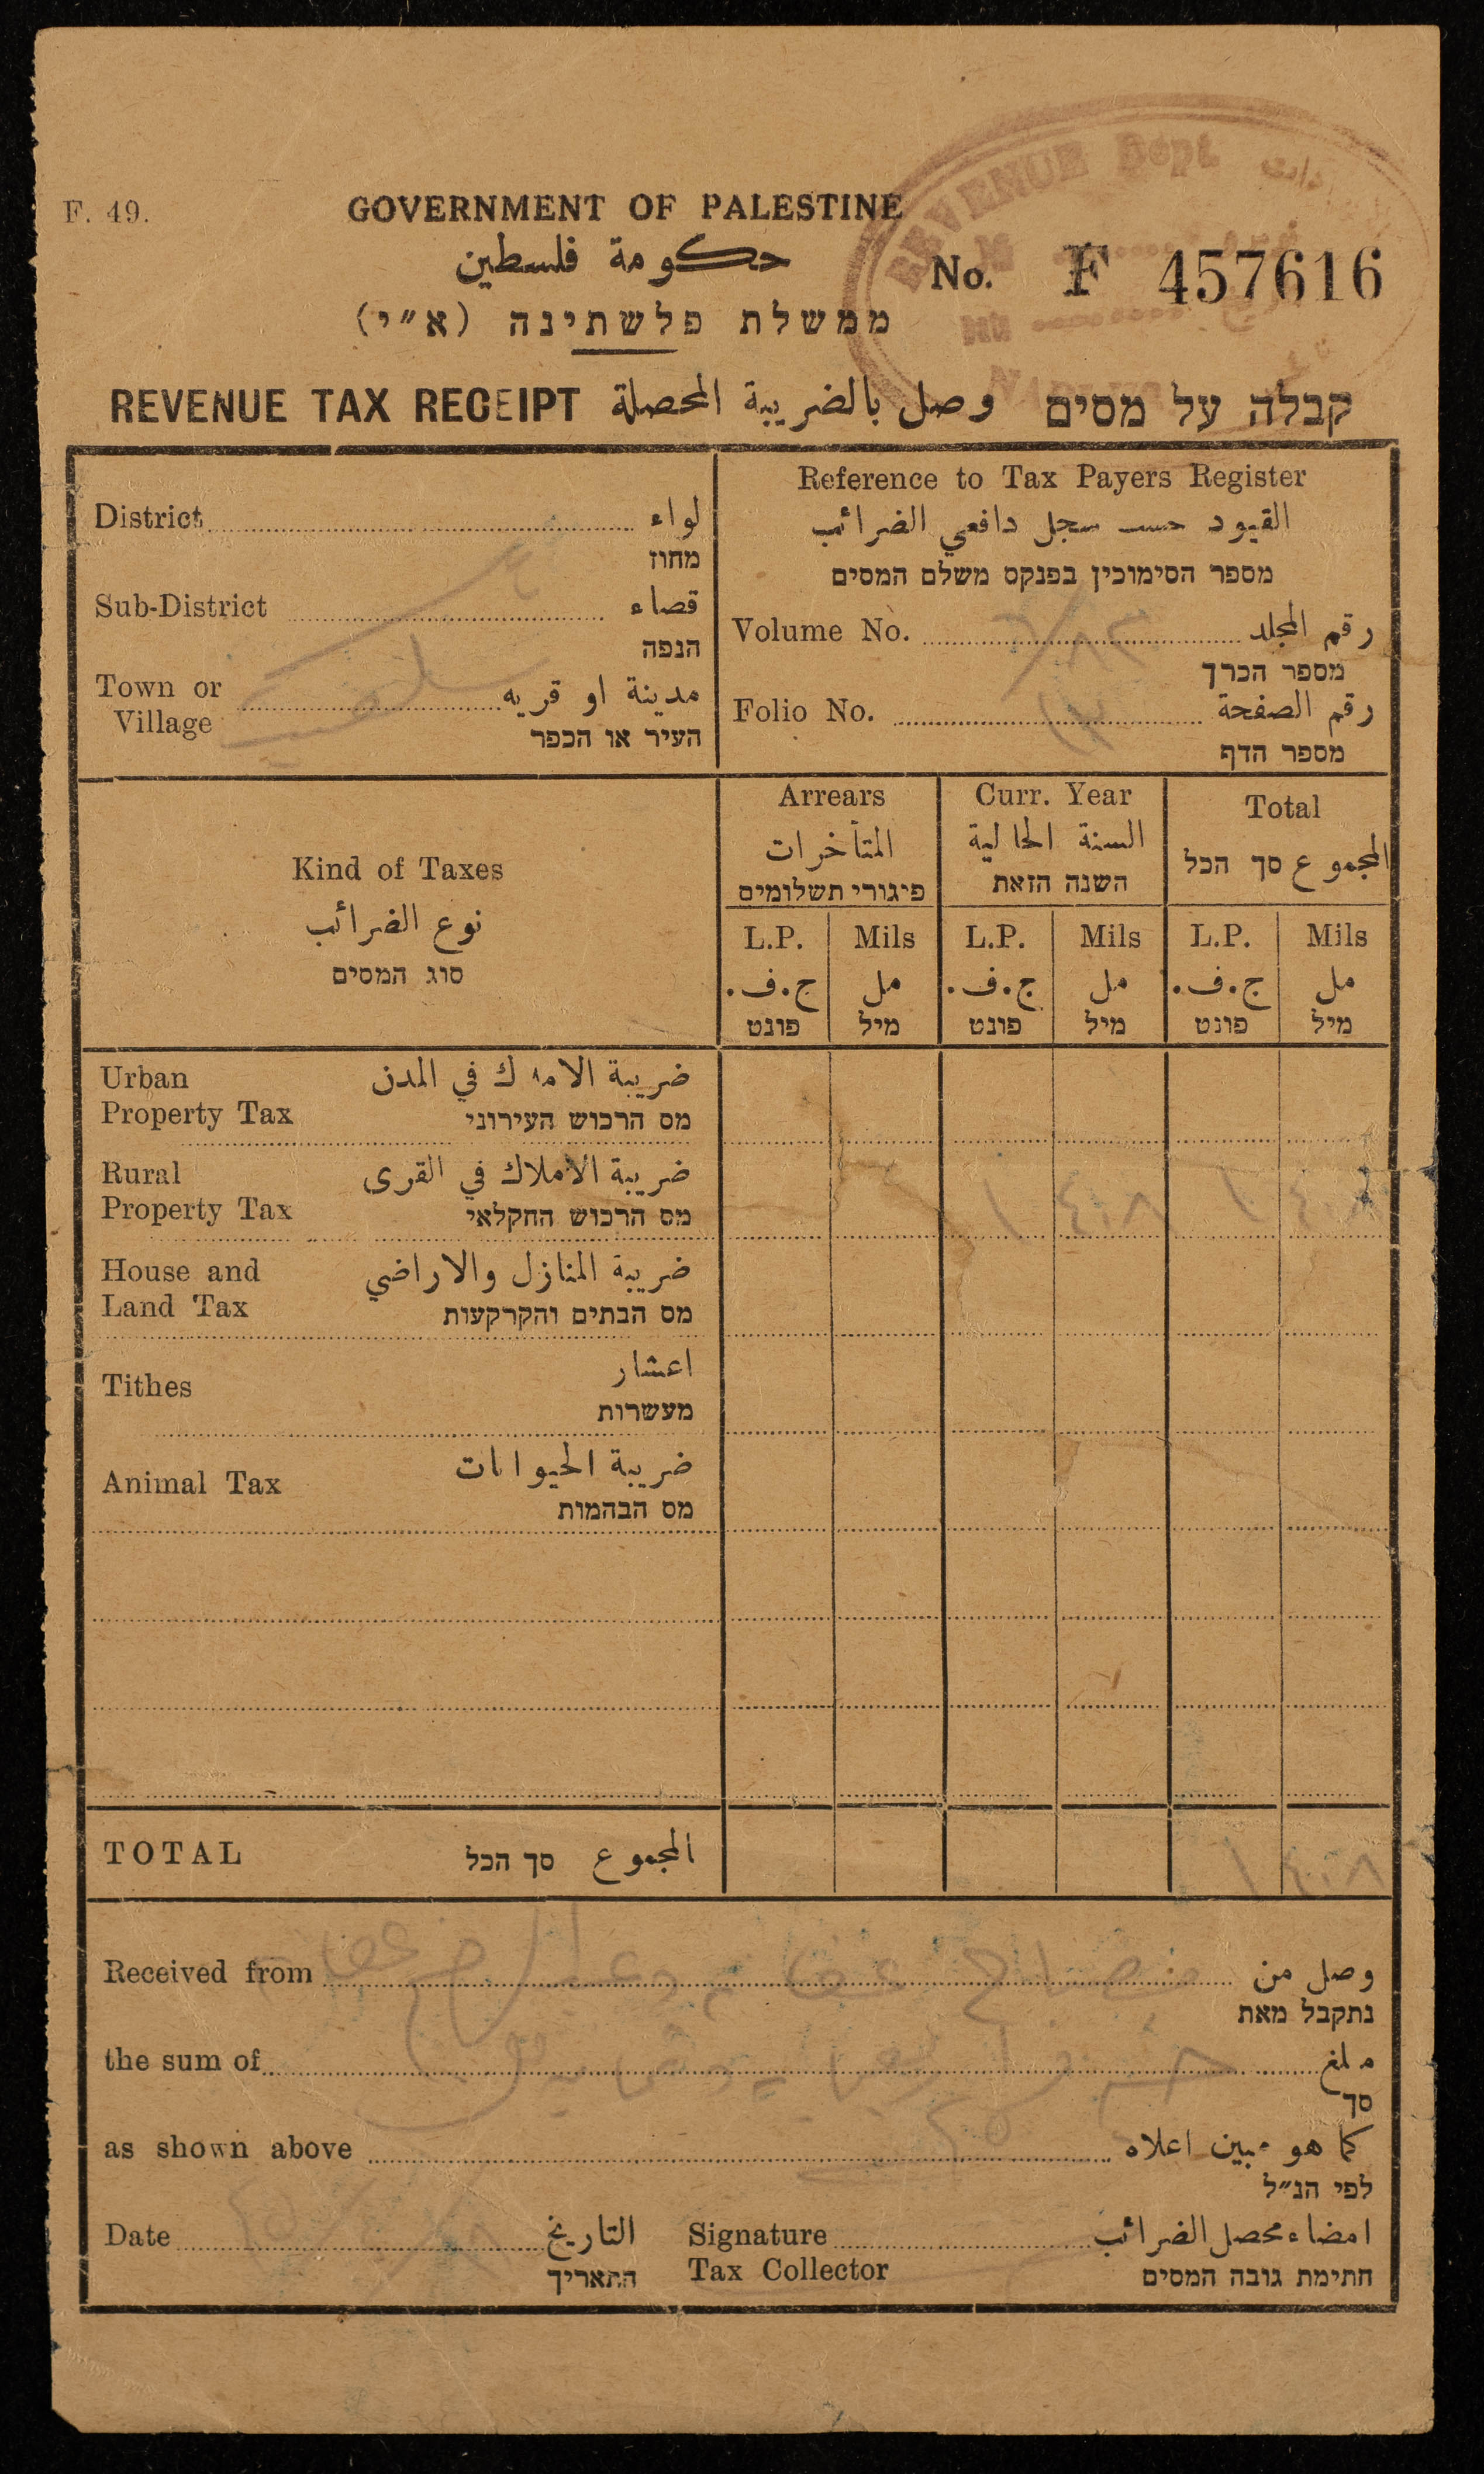 REVENUE Dept
F. 49.
GOVERNMENT OF PALESTINE
حكومة فلسطين
ממשלת פלשתינה (א״י)
No. F 457616
REVENUE TAX RECEIPT وصل بالضريبة المحصلة קבלה על מסים
District لواء
מחוז
Sub-District قضاء
הנפה
Town or Village مدينة او قريه
העיר או הכפר
Reference to Tax Payers Register
القيود حسب سجل دافعي الضرائب
מספר הסימוכין בפנקס משלם המסים
Volume No. رقم المجلد
מספר הכרך
Folio No. رقم الصفحة
מספר הדף
Kind of Taxes
نوع الضرائب
סוג המסים
Arrears
المتأخرات
פיגורי תשלומים
Curr. Year
السنة الحالية
השנה הזאת
Total
المجموع סך הכל
L.P. Mils L.P. Mils L.P. Mils
ج.ف. مل ج.ف. مل ج.ف. مل
פונט מיל פונט מיל פונט מיל
Urban Property Tax ضريبة الاملاك في المدن
מס הרכוש העירוני
Rural Property Tax ضريبة الاملاك في القرى
מס הרכוש החקלאי
١ ٤٠٨ ١ ٤٠٨
House and Land Tax ضريبة المنازل والاراضي
מס הבתים והקרקעות
Tithes اعشار
מעשרות
Animal Tax ضريبة الحيوانات
מס הבהמות
TOTAL المجموع סך הכל
١ ٤٠٨
Received from وصل من
נתקבל מאת
the sum of مبلغ
סך
as shown above كما هو مبين اعلاه
לפי הנ״ל
Date التاريخ
התאריך
Signature Tax Collector امضاء محصل الضرائب
חתימת גובה המסים